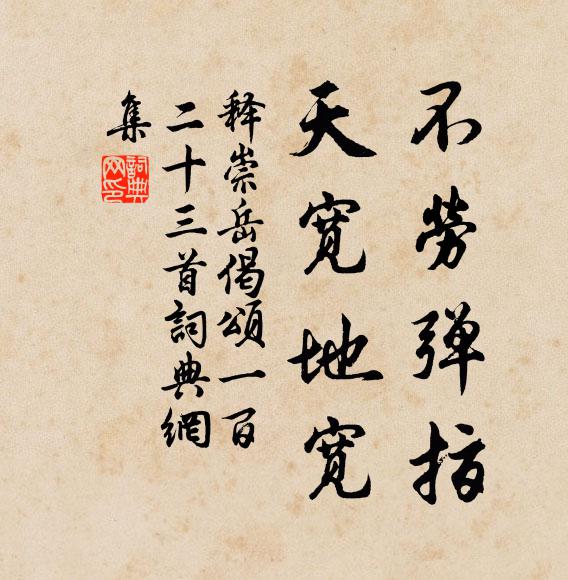 不勞弹指
天寬地寬
释崇岳偈頌一百
二十三首詞典網
集
詞典
网印